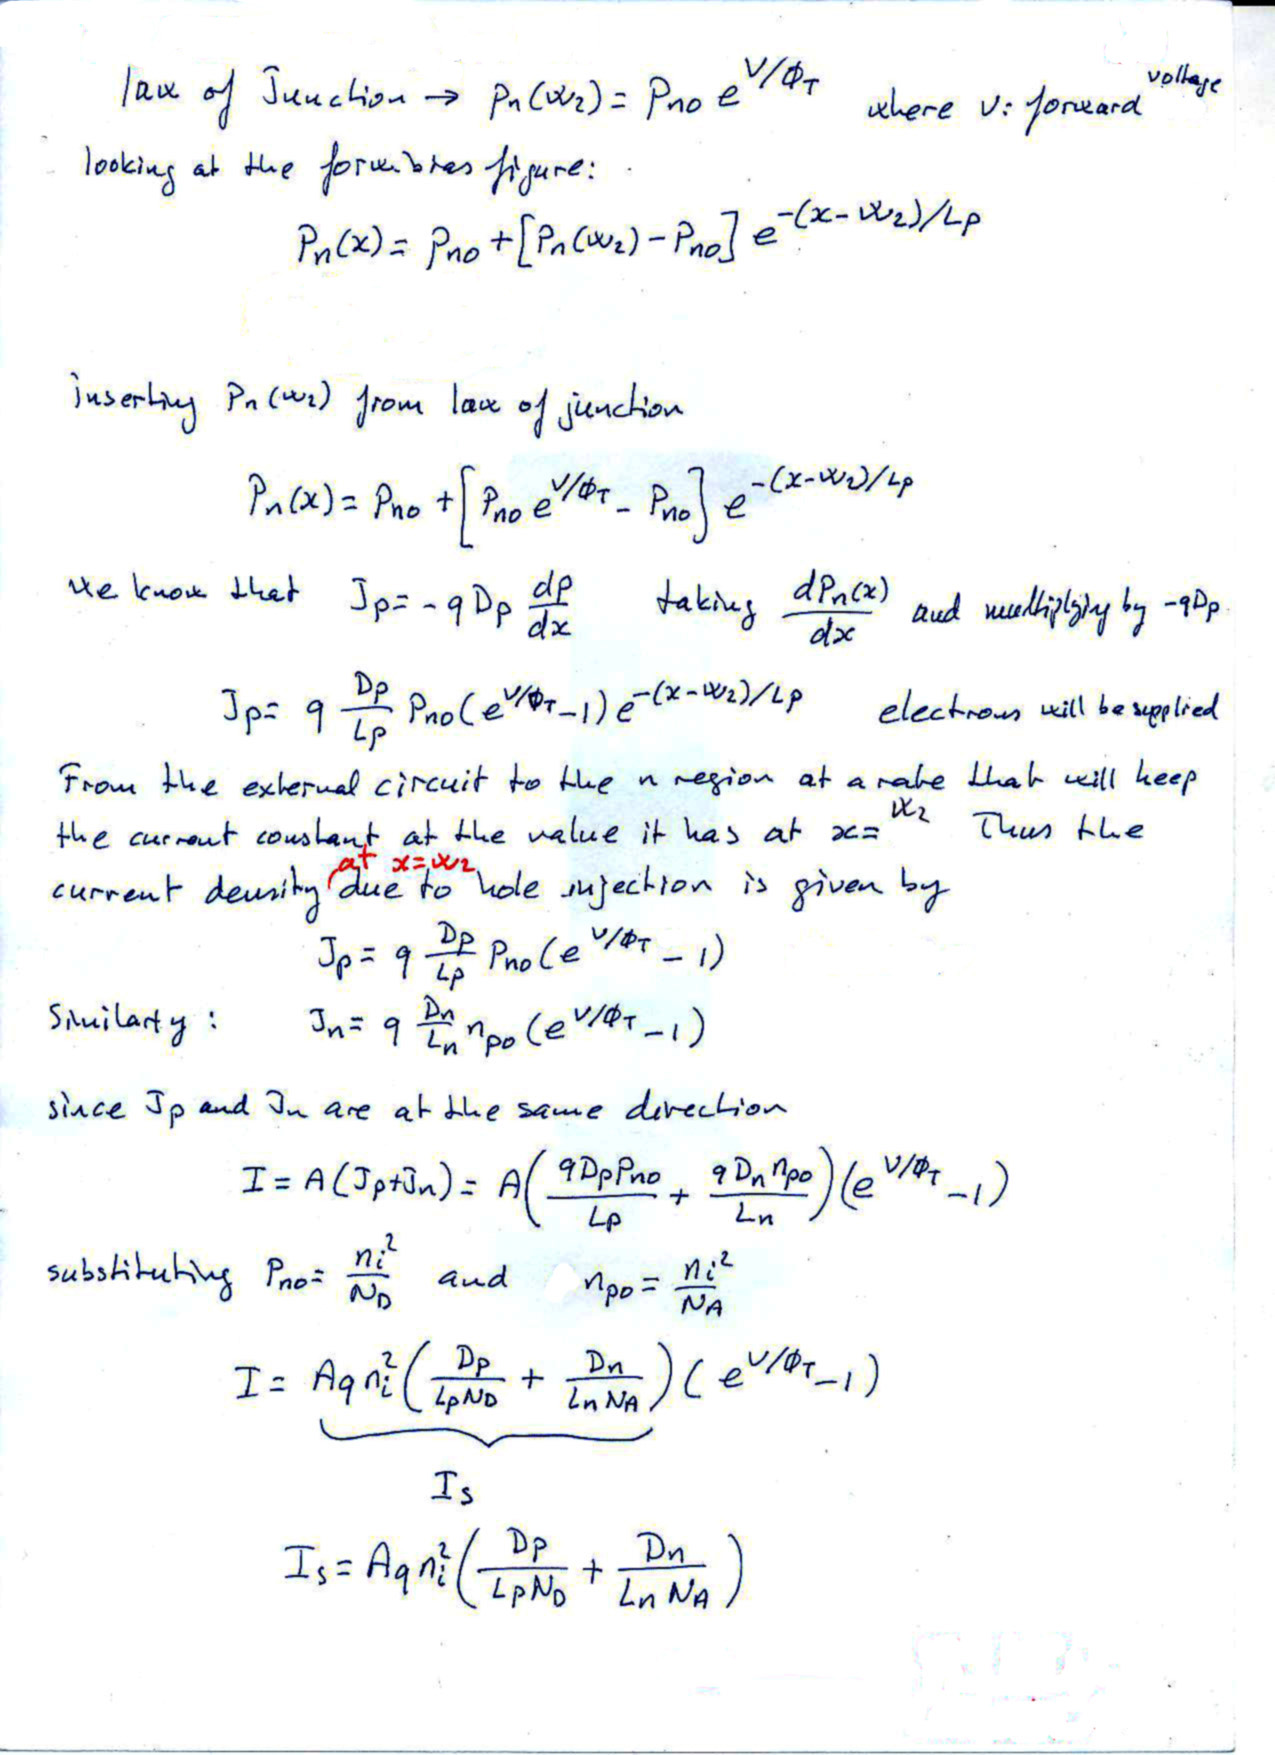 law of Junction → Pn(W2) = Pno e^V/ΦT where V: forward voltage
looking at the forw.bias figure:
Pn(x) = Pno + [Pn(W2) - Pno] e^-(x-W2)/Lp
inserting Pn(W2) from law of junction
Pn(x) = Pno + [Pno e^V/ΦT - Pno] e^-(x-W2)/Lp
We know that Jp = -qDp dp/dx taking dPn(x)/dx and multiplying by -qDp
Jp = q Dp/Lp Pno (e^V/ΦT - 1) e^-(x-W2)/Lp electrons will be supplied
From the external circuit to the n region at a rate that will keep
the current constant at the value it has at x = W2 Thus the
current density at x=W2 due to hole injection is given by
Jp = q Dp/Lp Pno (e^V/ΦT - 1)
Similarly : Jn = q Dn/Ln npo (e^V/ΦT - 1)
since Jp and Jn are at the same direction
I = A(Jp+Jn) = A(qDpPno/Lp + qDn npo/Ln)(e^V/ΦT - 1)
substituting Pno = ni²/ND and npo = ni²/NA
I = Aqni²(Dp/LpND + Dn/LnNA)(e^V/ΦT - 1)
Is
Is = Aqni²(Dp/LpND + Dn/LnNA)